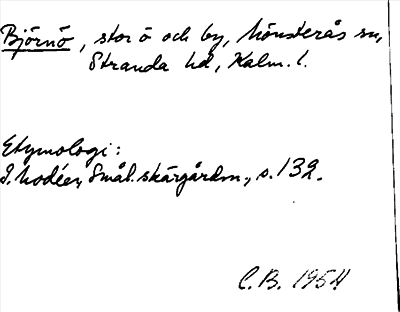 Björnö, stor ö och by, Mönsterås sn,
Stranda hd, Kalm. l.
Etymologi:
I. Modéer, Smål. skärgårdsn., s. 132.
C.B. 1954